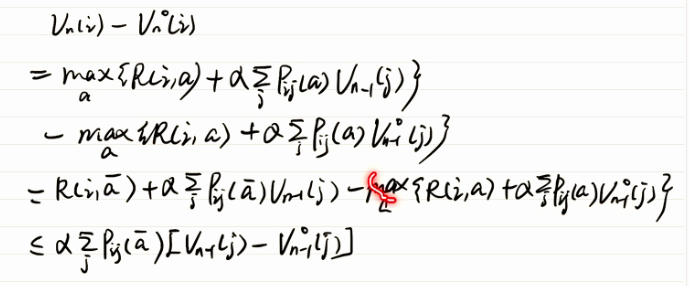 Vn(i) − Vn°(i)
= max_a {R(i,a) + α Σ_j Pij(a) Vn-1(j)}
− max_a {R(i,a) + α Σ_j Pij(a) V°n-1(j)}
= R(i,ā) + α Σ_j Pij(ā) Vn-1(j) − max_a {R(i,a) + α Σ_j Pij(a) V°n-1(j)}
≤ α Σ_j Pij(ā) [Vn-1(j) − V°n-1(j)]